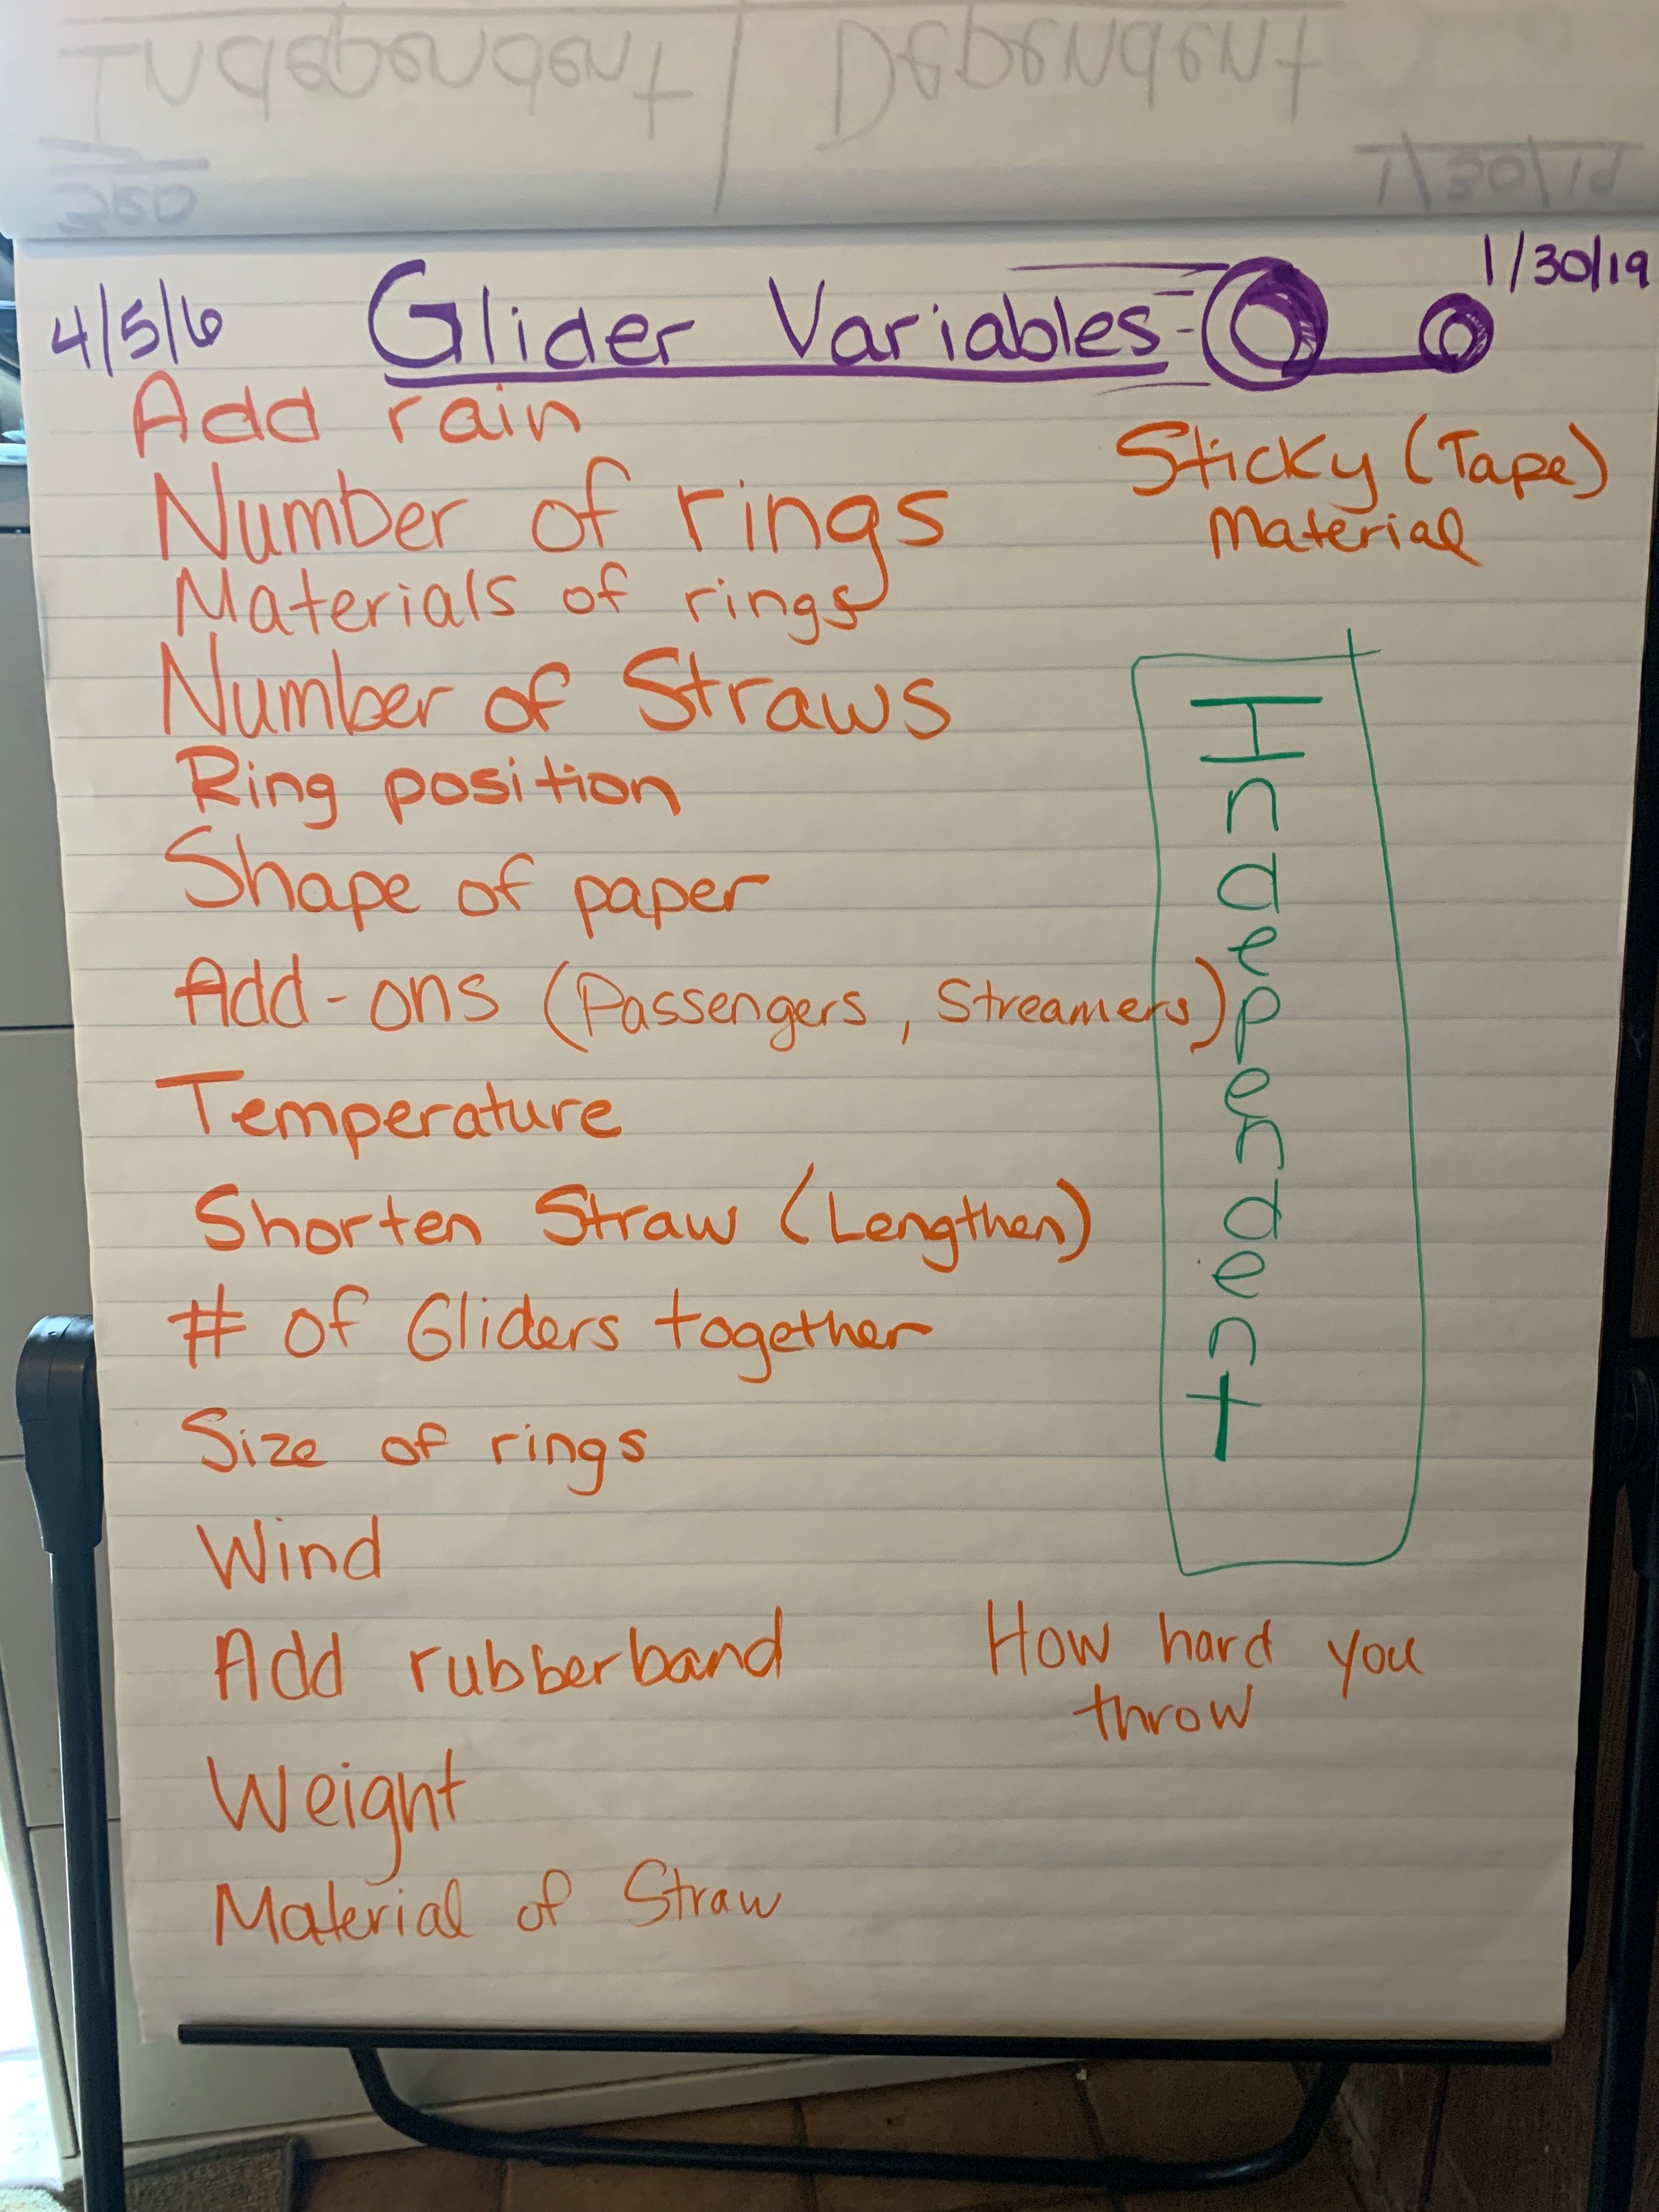 Independent | Dependent
1/30/19
4/5/6 Glider Variables
1/30/19
Add rain
Number of rings
Materials of rings
Number of Straws
Ring position
Shape of paper
Add-ons (Passengers, Streamers)
Temperature
Shorten Straw (Lengthen)
# of Gliders together
Size of rings
Wind
Add rubberband
Weight
Material of Straw
Sticky (Tape)
Material
Independent
How hard you
throw